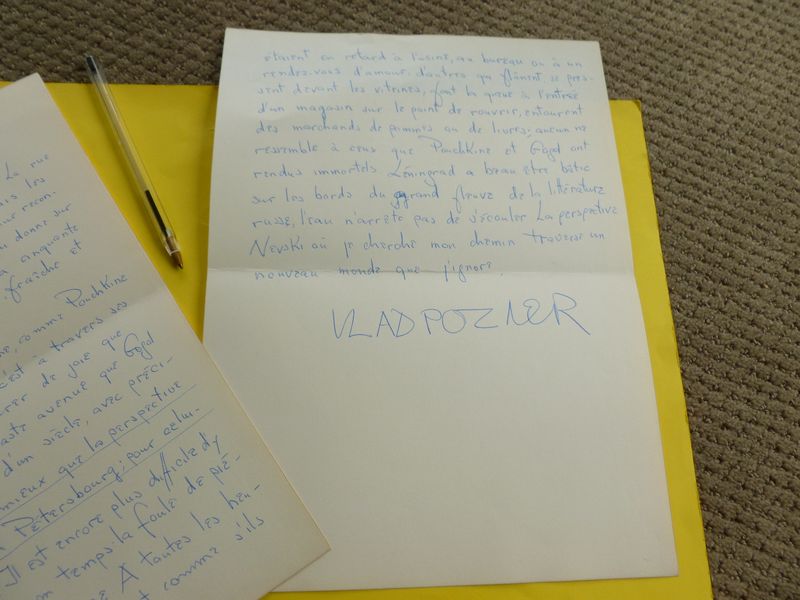 La rue
ais les
our recon-
u donne sur
a cinquante
fraîche et
ne, comme Pouchkine
c'est à travers ses
rer de joie que
aste avenue que Gogol
d'un siècle, avec préci-
mieux que la perspective
n Pétersbourg; pour celui-
Il est encore plus difficile d'y
n temps la foule de pié-
e À toutes les heu-
t comme s'ils
étaient en retard à l'usine, au bureau ou à un
rendez-vous d'amour. d'autres qui flânent se pres-
sent devant les vitrines, font la queue à l'entrée
d'un magasin sur le point de rouvrir, entourent
des marchands de pommes ou de livres; aucun ne
ressemble à ceux que Pouchkine et Gogol ont
rendus immortels Léningrad a beau être bâtie
sur les bords du grand fleuve de la littérature
russe, l'eau n'arrête pas de s'écouler La perspective
Nevski où je cherche mon chemin traverse un
nouveau monde que j'ignore.
VLAD POZNER